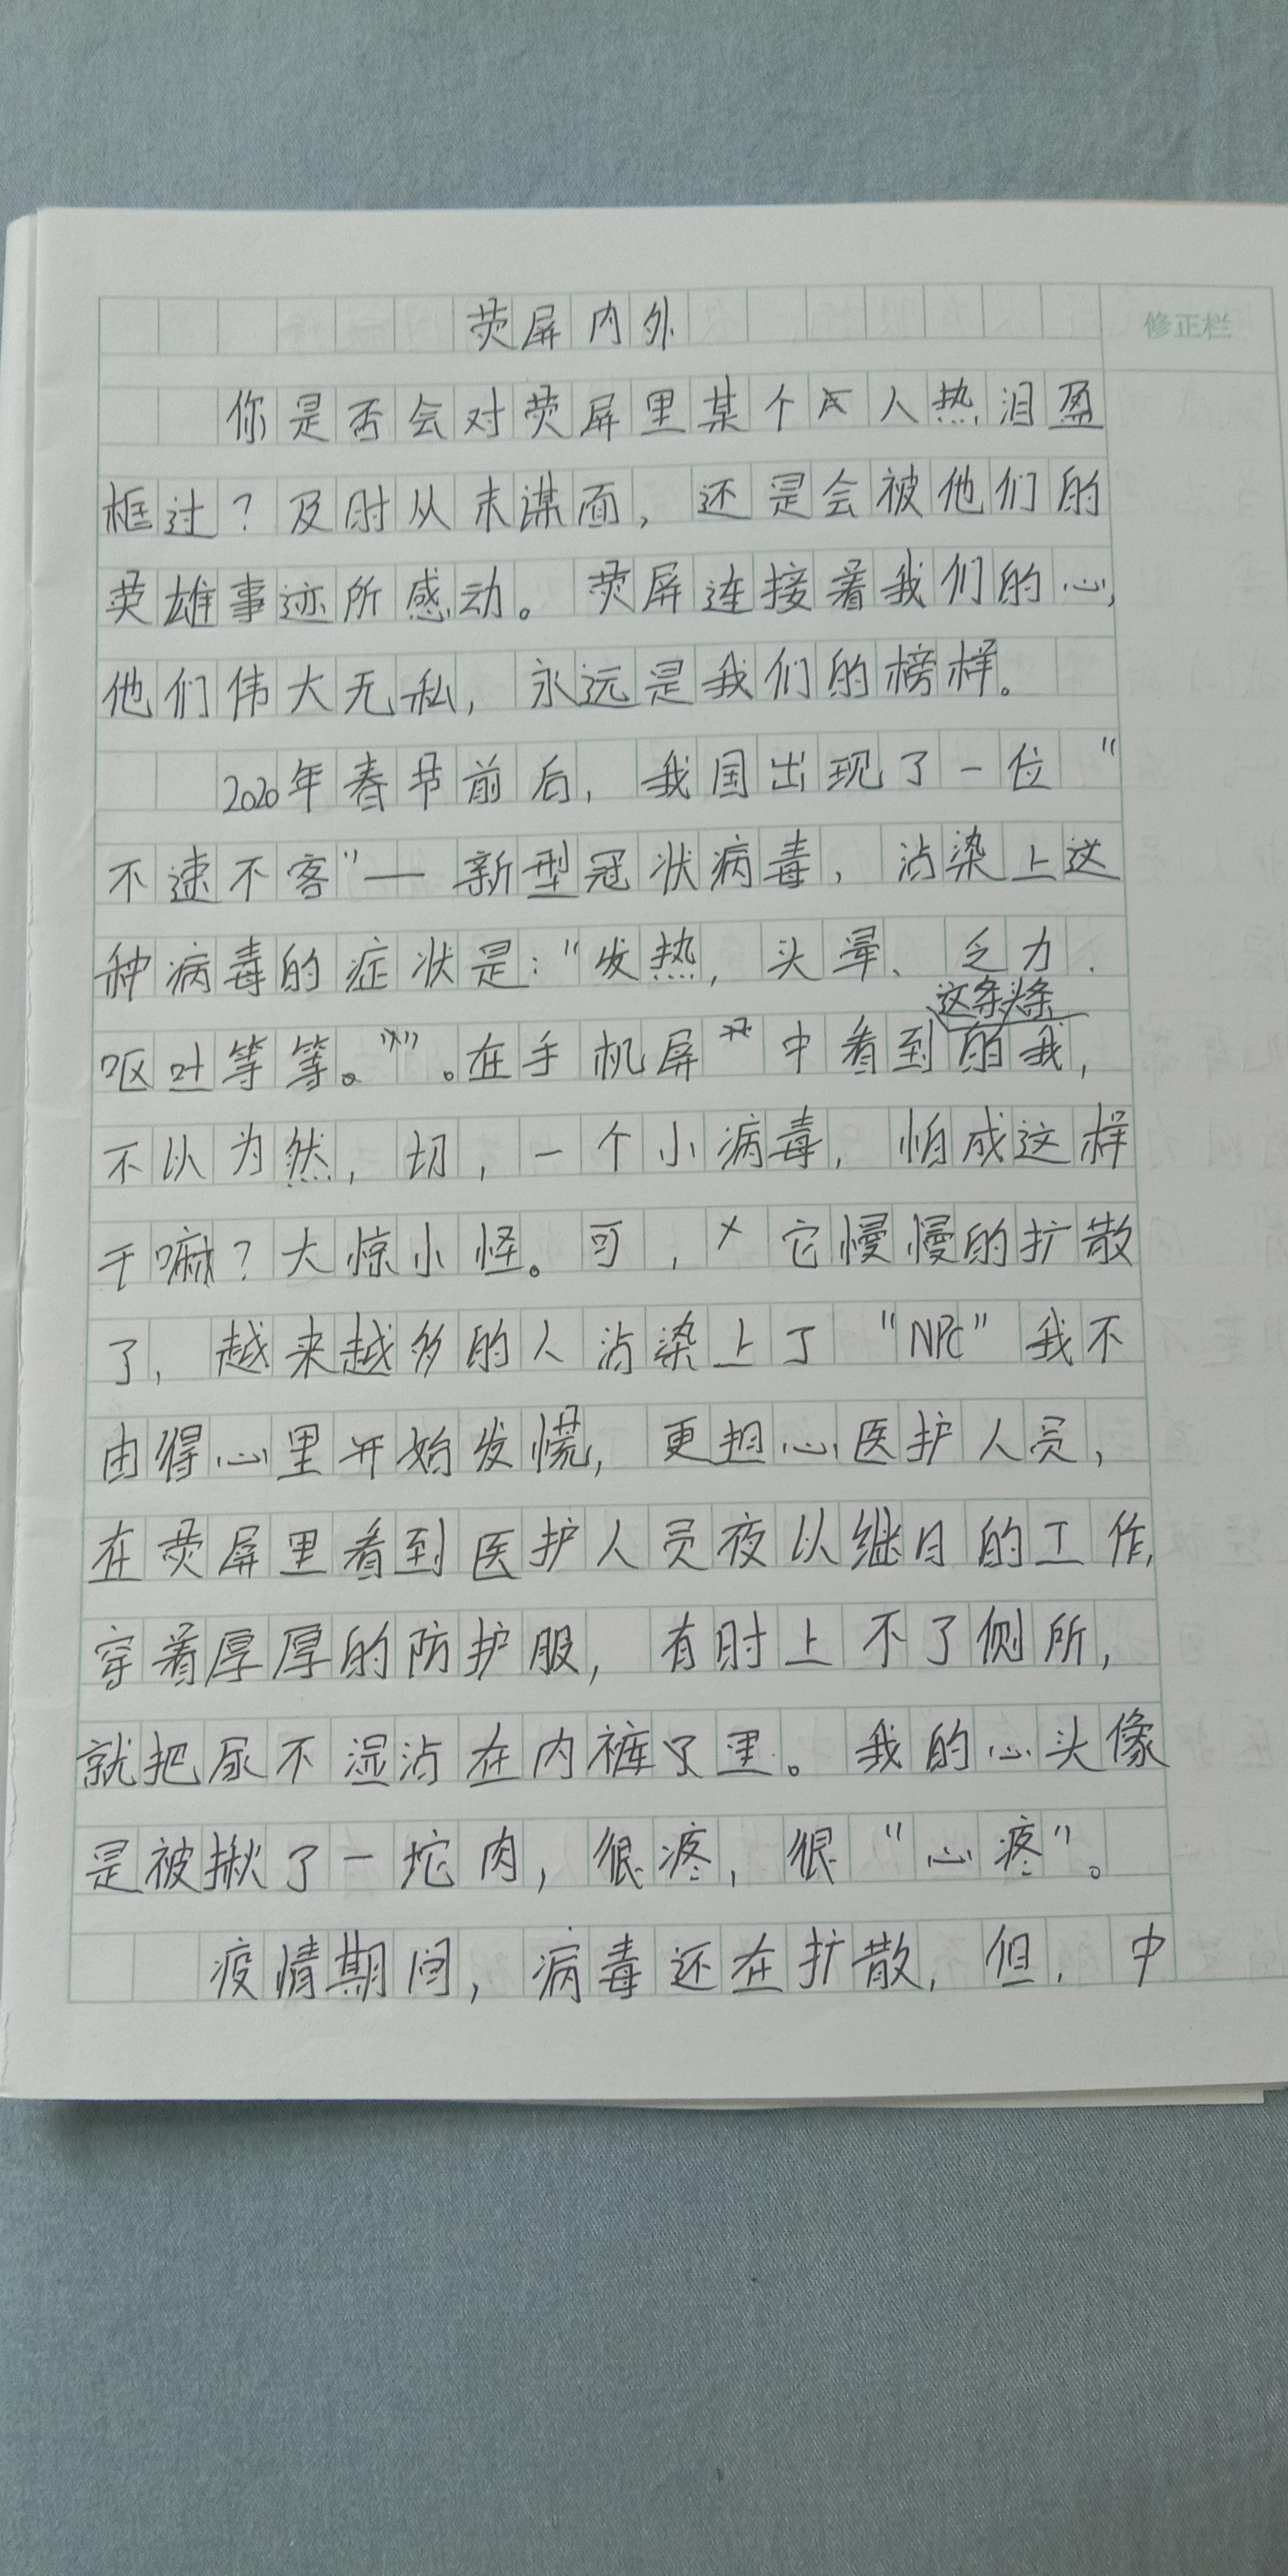 荧屏内外
修正栏
你是否会对荧屏里某个人热泪盈
框过？及时从未谋面，还是会被他们的
英雄事迹所感动。荧屏连接着我们的心，
他们伟大无私，永远是我们的榜样。
2020年春节前后，我国出现了一位“
不速不客”—新型冠状病毒，沾染上这
种病毒的症状是：“发热，头晕、乏力、
这条头条
呕吐等等。”。在手机屏中看到的我，
不以为然，切，一个小病毒，怕成这样
干嘛？大惊小怪。可，它慢慢的扩散
了，越来越多的人沾染上了“NPC”我不
由得心里开始发慌，更担心医护人员，
在荧屏里看到医护人员夜以继日的工作，
穿着厚厚的防护服，有时上不了侧所，
就把尿不湿沾在内裤里。我的心头像
是被揪了一坨肉，很疼，很“心疼”。
疫情期间，病毒还在扩散，但，中